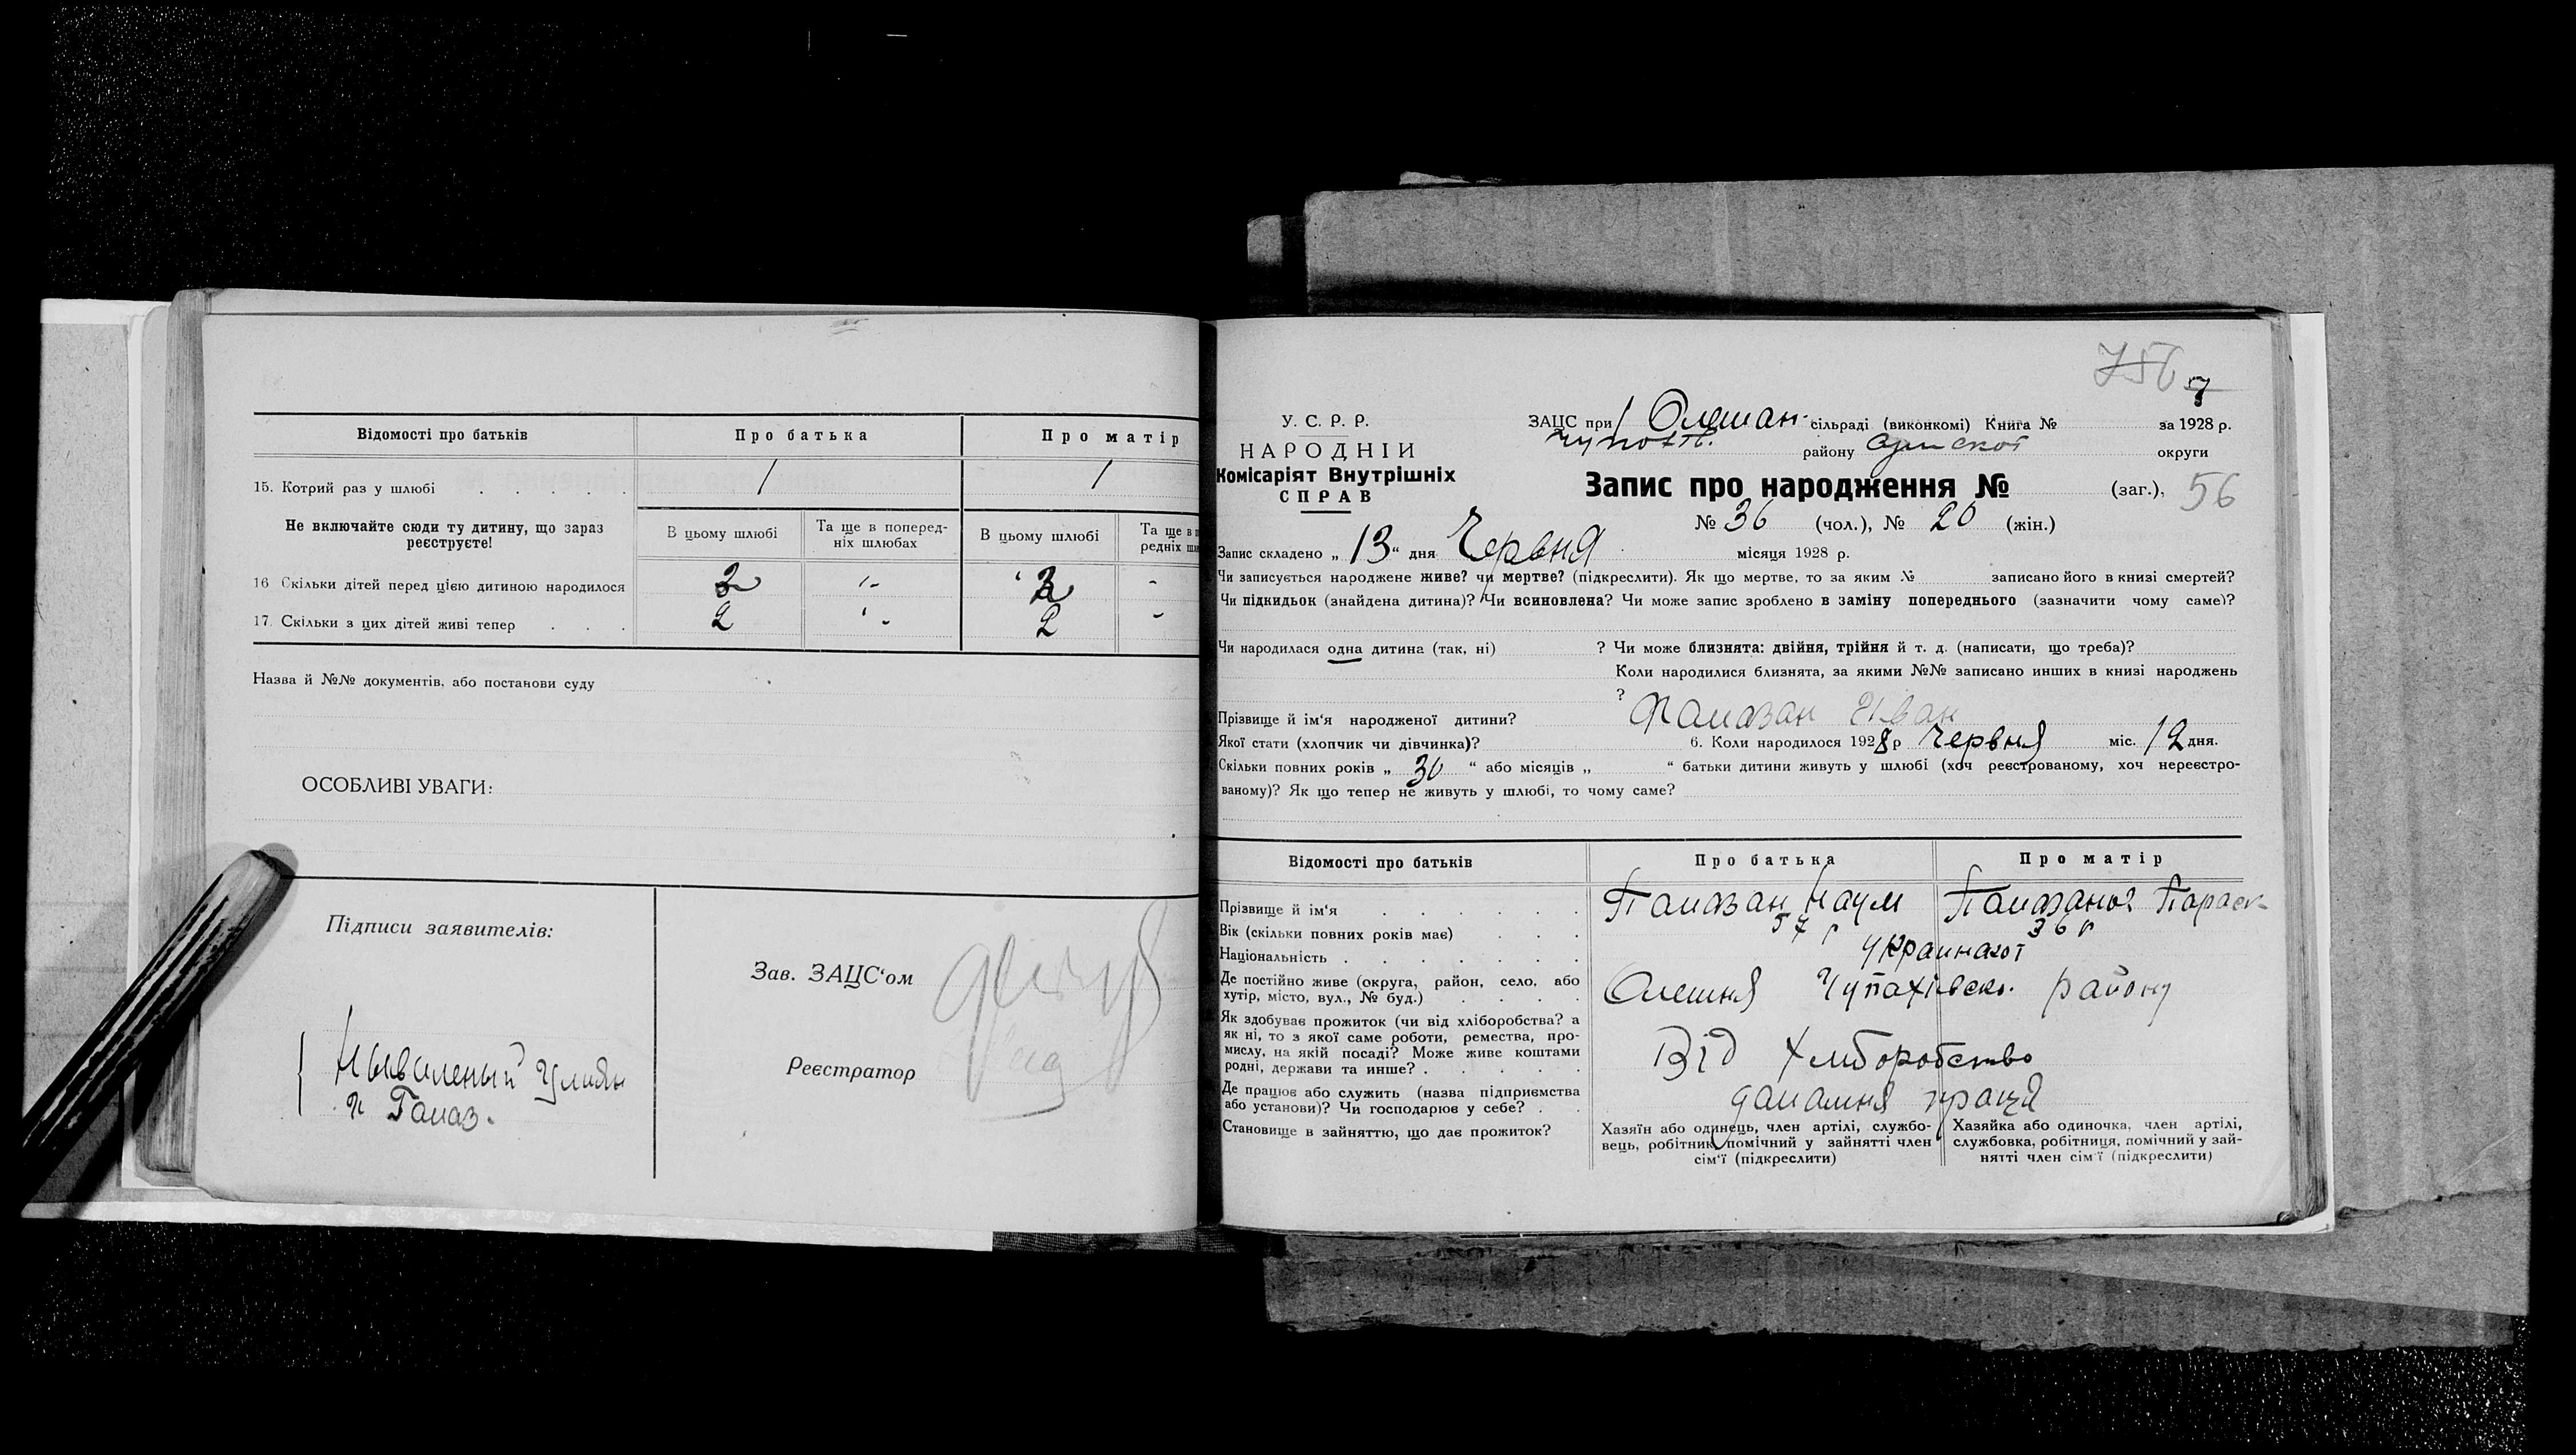 Відомості про батьків Про батька Про матір
15. Котрий раз у шлюбі 1 1
Не включайте сюди ту дитину, що зараз реєструєте!
В цьому шлюбі Та ще в поперед-ніх шлюбах В цьому шлюбі Та ще в п редніх шл
16 Скільки дітей перед цією дитиною народилося
17. Скільки з цих дітей живі тепер 2 - 2 -
Назва й №№ документів, або постанови суду
ОСОБЛИВІ УВАГИ:
Підписи заявителів:
Зав. ЗАЦС‘ом
Реєстратор
У. С. Р. Р.
НАРОДНІЙ
Комісаріят Внутрішніх
СПРАВ
ЗАЦС при Олешан. сільраді (виконкомі) Книга № за 1928 р.
району округи
Запис про народження № (заг.), 56
№ 36 (чол.), № 20 (жін.)
Запис складено „ 13 “ дня Червня місяця 1928 р.
Чи записується народжене живе? чи мертве? (підкреслити). Як що мертве, то за яким № записано його в книзі смертей?
Чи підкидьок (знайдена дитина)? Чи всиновлена? Чи може запис зроблено в заміну попереднього (зазначити чому саме)?
Чи народилася одна дитина (так, ні) ? Чи може близнята: двійня, трійня й т. д. (написати, що треба)?
Коли народилися близнята, за якими №№ записано инших в книзі народжень
?
Прізвище й ім‘я народженої дитини? Иван
Якої стати (хлопчик чи дівчинка)? 6. Коли народилося 1928 р Червня міс. 12 дня.
Скільки повних років „ 30 “ або місяців „ “ батьки дитини живуть у шлюбі (хоч реєстрованому, хоч нереєстро-
ваному)? Як що тепер не живуть у шлюбі, то чому саме?
Відомості про батьків Про батька Про матір
Прізвище й ім‘я Наум Параск
Вік (скільки повних років має) 57 г 36 г
Національність
Де постійно живе (округа, район, село, або
хутір, місто, вул., № буд.) Олешня Чупахівсько. району
Як здобуває прожиток (чи від хліборобства? а
як ні, то з якої саме роботи, ремества, про-
мислу, на якій посаді? Може живе коштами
родні, держави та инше? Від Хліборобство
Де працює або служить (назва підприємства
або установи)? Чи господарює у себе? праця
Становище в зайняттю, що дає прожиток?
Хазяїн або одинець, член артілі, службо-
вець, робітник, помічний у зайнятті член
сім‘ї (підкреслити)
Хазяйка або одиночка, член артілі,
службовка, робітниця, помічний у зай-
нятті член сім‘ї (підкреслити)